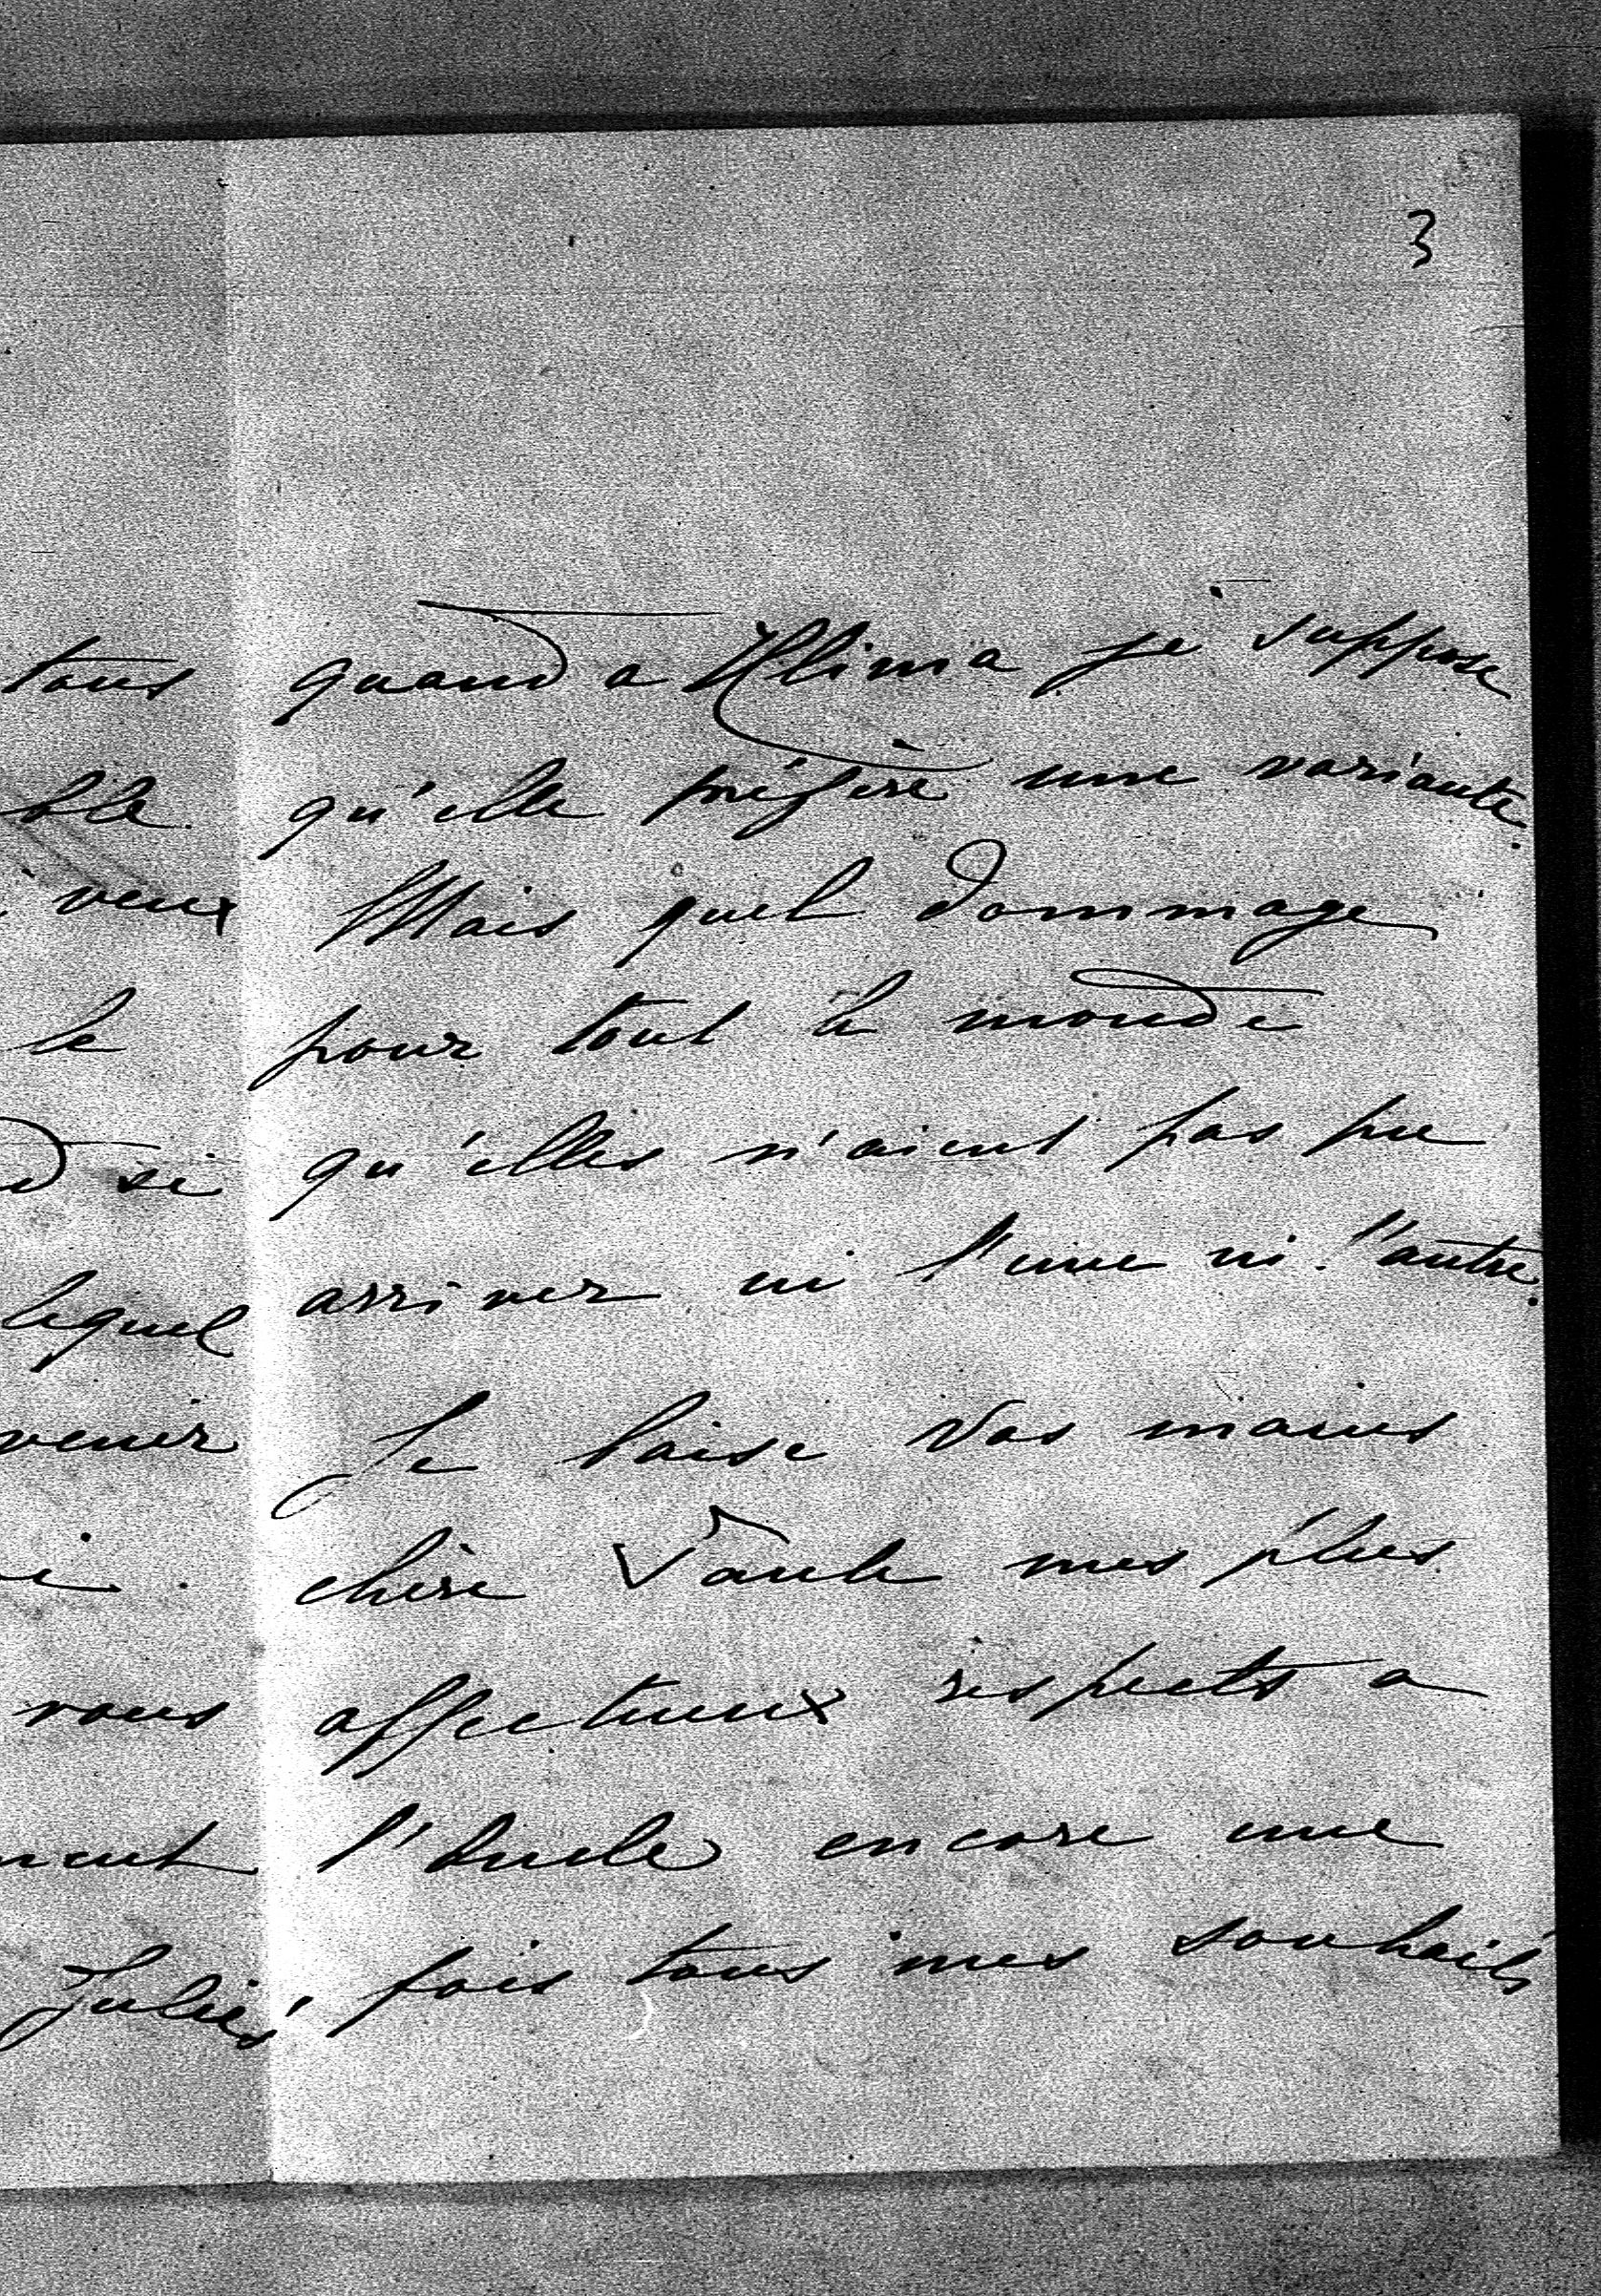 3
quand a Klinia je suppose
qu'elle préfère une variante.
Mais quel dommage
pour tout le monde
qu'elles n'aient pas pu
arriver ni l'une ni l'autre.
Je baise vos mains
chère Tante mes plus
affectueux respects a
l'Oncle encore une
fois tous mes souhaits
tous
ble.
veux
le
si
lequel
venir
vous
Julies